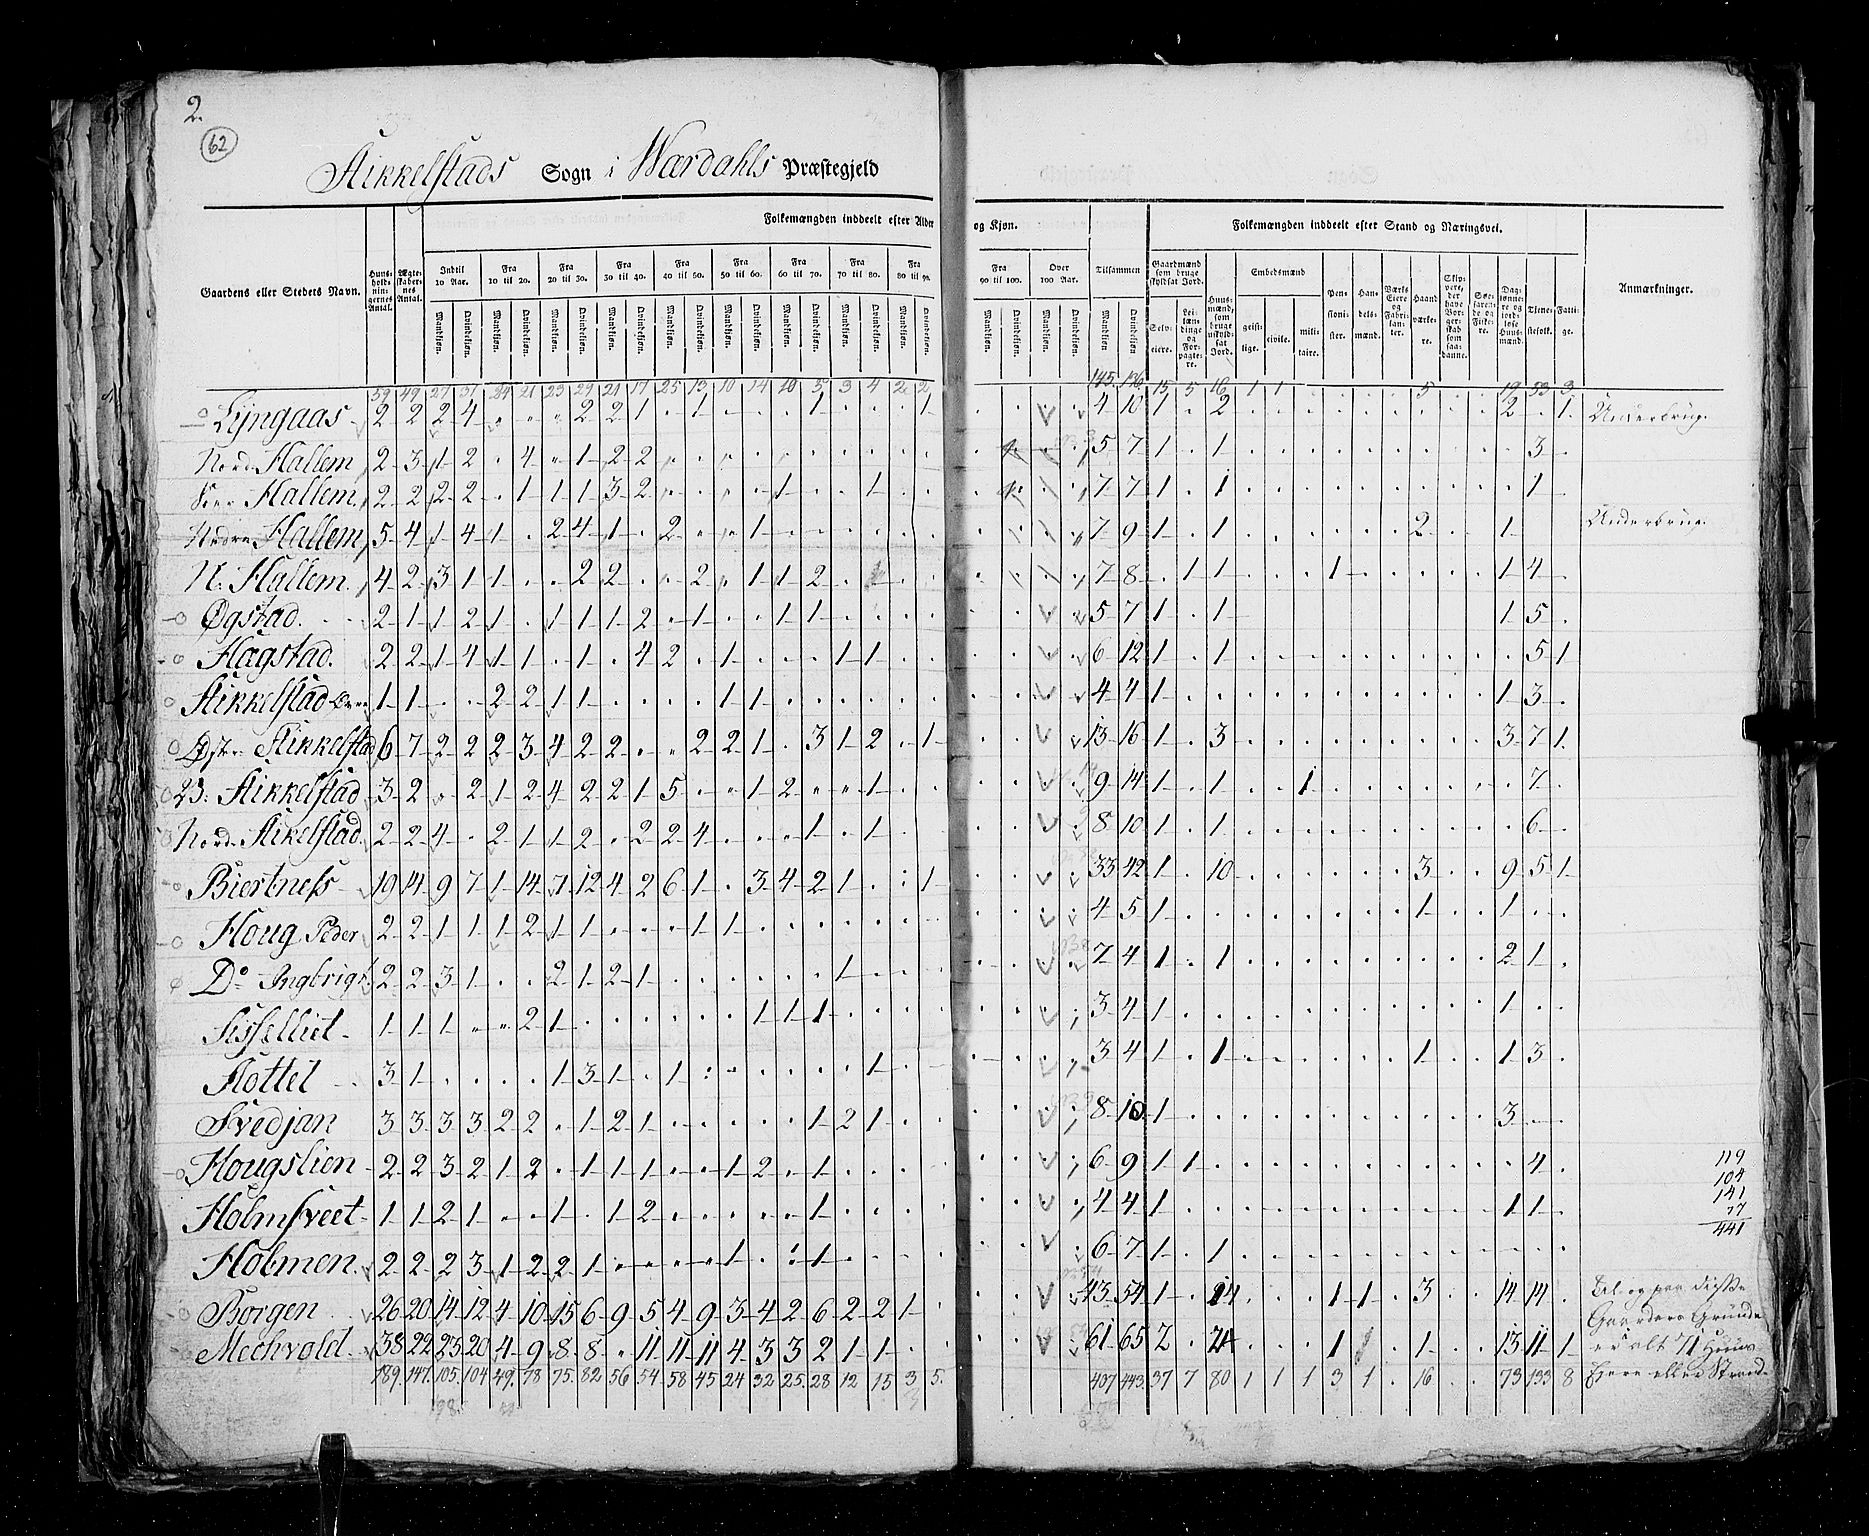 2.
62
Stikkelstads Sogn i Wærdahls Præstegjeld
Folkemængden inddeelt efter Alder og Kjøn.
Folkemængden inddeelt efter Stand og Næringsvei.
Gaardens eller Stedets Navn. Huusholdningernes Antal. Ægteskabernes Antal. Indtil 10 Aar. Fra 10 til 20. Fra 20 til 30. Fra 30 til 40. Fra 40 til 50. Fra 50 til 60. Fra 60 til 70. Fra 70 til 80. Fra 80 til 90. Fra 90 til 100. Over 100 Aar. Tilsammen Gaardmænd som bruge skyldsat Jord. Huusmænd, som bruge uskyldsat Jord. Embedsmænd Pensionister. Handelsmænd. Værks Eiere Fabrikanter. Haandværkere. Skippere, der have Borgerskab som saadanne. Søefarende og Fiskere. Daglønnere og jordløse Huusmænd. Tjenestefolk. Fattige. Anmærkninger.
Mandkjøn. Qvindekjøn. Mandkjøn. Qvindekjøn. Mandkjøn. Qvindekjøn. Mandkjøn. Qvindekjøn. Mandkjøn. Qvindekjøn. Mandkjøn. Qvindekjøn. Mandkjøn. Qvindekjøn. Mandkjøn. Qvindekjøn. Mandkjøn. Qvindekjøn. Mandkjøn. Qvindekjøn. Mandkjøn. Qvindekjøn. Mandkjøn Qvindekjøn. Selveiere. Leilændinge og Forpagtere. geistlige. civile. militaire.
59 49 27 31 24 21 23 29 21 17 25 13 10 14 10 5 3 4 2 2 145 136 15 5 16 1 1 5 19 53 3
Lyngaas 2 2 2 4 2 2 1 1 1 1 4 10 1 2 2 1 Underbrug.
Nord Hallem 2 3 1 2 4 1 2 2 5 7 1 1 3
Hallem 2 2 2 2 1 1 1 3 2 1 1 7 7 1 1 1
Nedre Hallem 5 4 1 4 1 2 4 1 2 1 7 9 1 1 2 1 Underbrug.
N: Hallem 4 2 3 1 1 2 2 2 1 1 2 7 8 1 1 1 1 4
Øgstad 2 1 1 2 1 1 1 1 2 1 1 1 5 7 1 1 1 5
Hagstad 2 2 1 4 1 1 1 4 2 1 1 1 6 12 1 1 5 1
Stikkelstad 1 1 2 2 1 1 1 1 4 4 1 1 3
Østre Stikkelstad 6 7 2 2 2 3 4 2 2 2 2 1 3 1 2 1 13 16 1 3 3 7 1
23: Stikkelstad 3 2 2 1 2 4 2 2 1 5 1 2 1 9 14 1 1 1 7
Nord. Stikelstad 2 2 4 2 1 1 2 2 2 4 1 1 8 10 1 1 6
Biertness 19 14 9 7 1 14 7 12 4 2 6 1 3 4 2 1 1 33 42 1 10 3 9 5 1
Houg Peder 2 2 1 1 1 2 1 1 1 1 4 5 1 1 1
Do Ingbrigt 2 2 3 1 2 1 2 1 1 7 4 1 1 2 1
Sisselliet 1 1 1 2 1 1 1 1 3 4 1 1
Flottet 3 1 1 3 1 1 1 3 4 1 1 1 1 3
Svedjan 3 3 3 3 2 2 1 2 1 1 2 1 8 10 1 3
Hougslien 2 2 3 2 1 2 1 1 1 1 2 1 6 9 1 1 4
Holmsveet 1 1 2 1 1 1 2 1 4 4 1 1 1
Holmen 2 2 2 3 1 2 2 1 1 1 6 7 1 1
Borgen 26 20 14 12 4 10 15 6 9 5 4 9 3 4 2 6 2 2 1 43 54 1 14 1 1 3 14 14
Mechvold 38 22 23 20 4 9 8 8 11 11 11 4 3 3 2 1 1 61 65 2 24 1 1 1 13 11 1
189. 147. 105. 104 49. 78 75. 82 56 54 58 45 24 32 25 28 12 15 3 5. 407 443 37 7 80 1 1 1 3 1 16 73 133 8
119
104
141
77
441
Gaarders Grunde
er alt 71 Huus